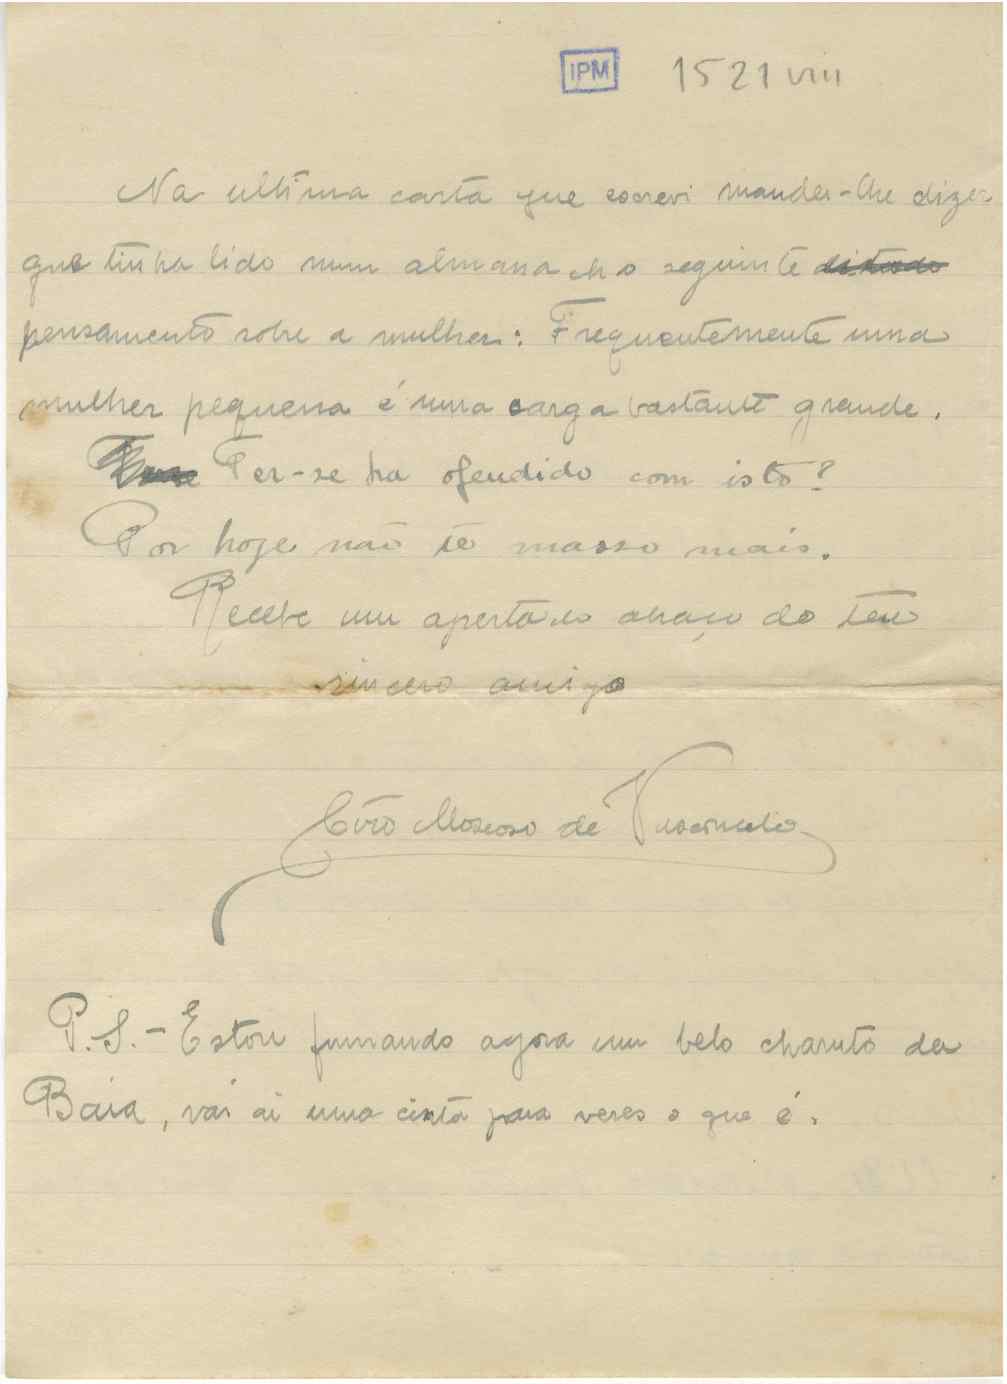 IPM 1521 VIII
Na ultima carta que escrevi mandei-lhe dizer
que tinha lido num almanach o seguinte ditado
pensamento sobre a mulher: Frequentemente uma
mulher pequena é uma carga bastante grande.
Ter-se ha ofendido com isto?
Por hoje não te masso mais.
Recebe um apertado abraço do teu
sincero amigo
Moscoso de Vasconcelos
P.S. - Estou fumando agora um belo charuto da
Baia, vai ai uma cinta para veres o que é.